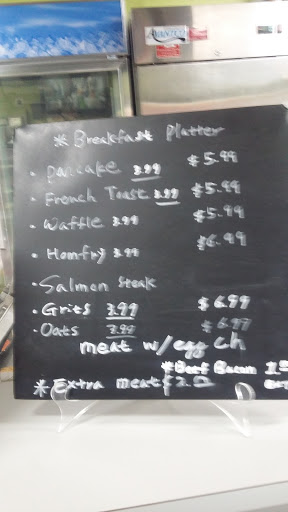 * Breakfast Platter
• Pancake 3.99 $5.99
• French Toast 3.99 $5.99
• Waffle 3.99 $5.99
• Homfry 3.99 $6.99
• Salmon Steak
• Grits 3.99 $6.99
• Oats 3.99 $6.99
meat w/egg ch
*Beef Bacon
*Extra meat $2.00